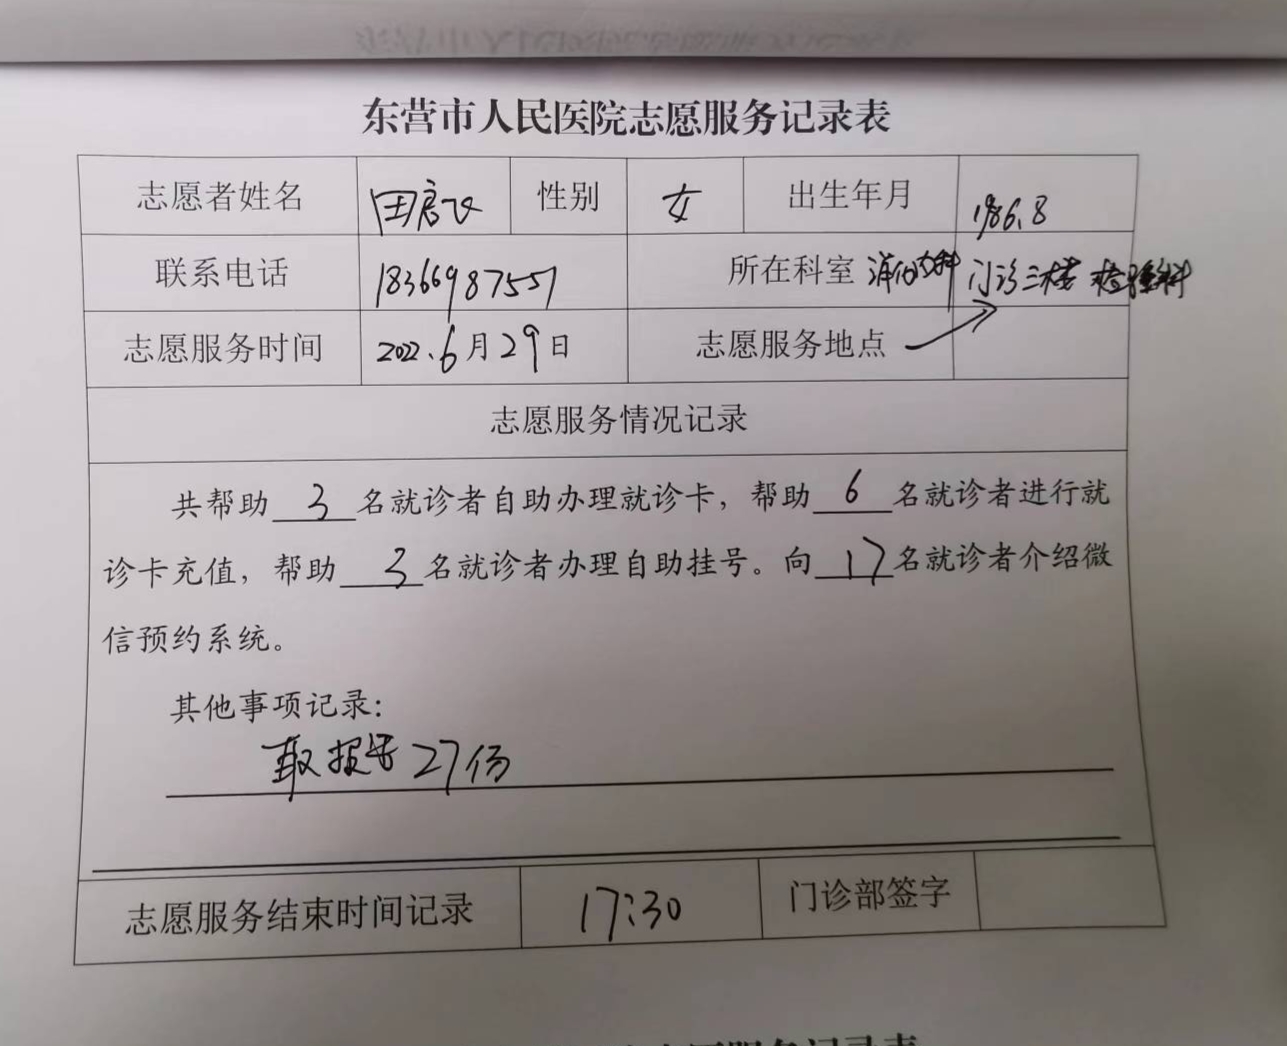 东营市人民医院志愿服务记录表
志愿者姓名 田 性别 女 出生年月 1986.8
联系电话 18366987551 所在科室 消化内科 门诊三楼 检验科
志愿服务时间 2022.6月29日 志愿服务地点
志愿服务情况记录
共帮助 3 名就诊者自助办理就诊卡，帮助 6 名就诊者进行就
诊卡充值，帮助 3 名就诊者办理自助挂号。向 17 名就诊者介绍微
信预约系统。
其他事项记录：
取报告27份
志愿服务结束时间记录 17:30 门诊部签字